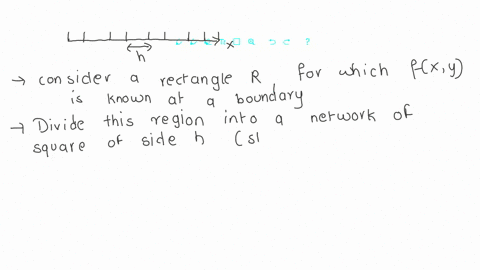 h
x
→ consider a rectangle R for which f(x,y)
is known at a boundary
→ Divide this region into a network of
square of side h (sl